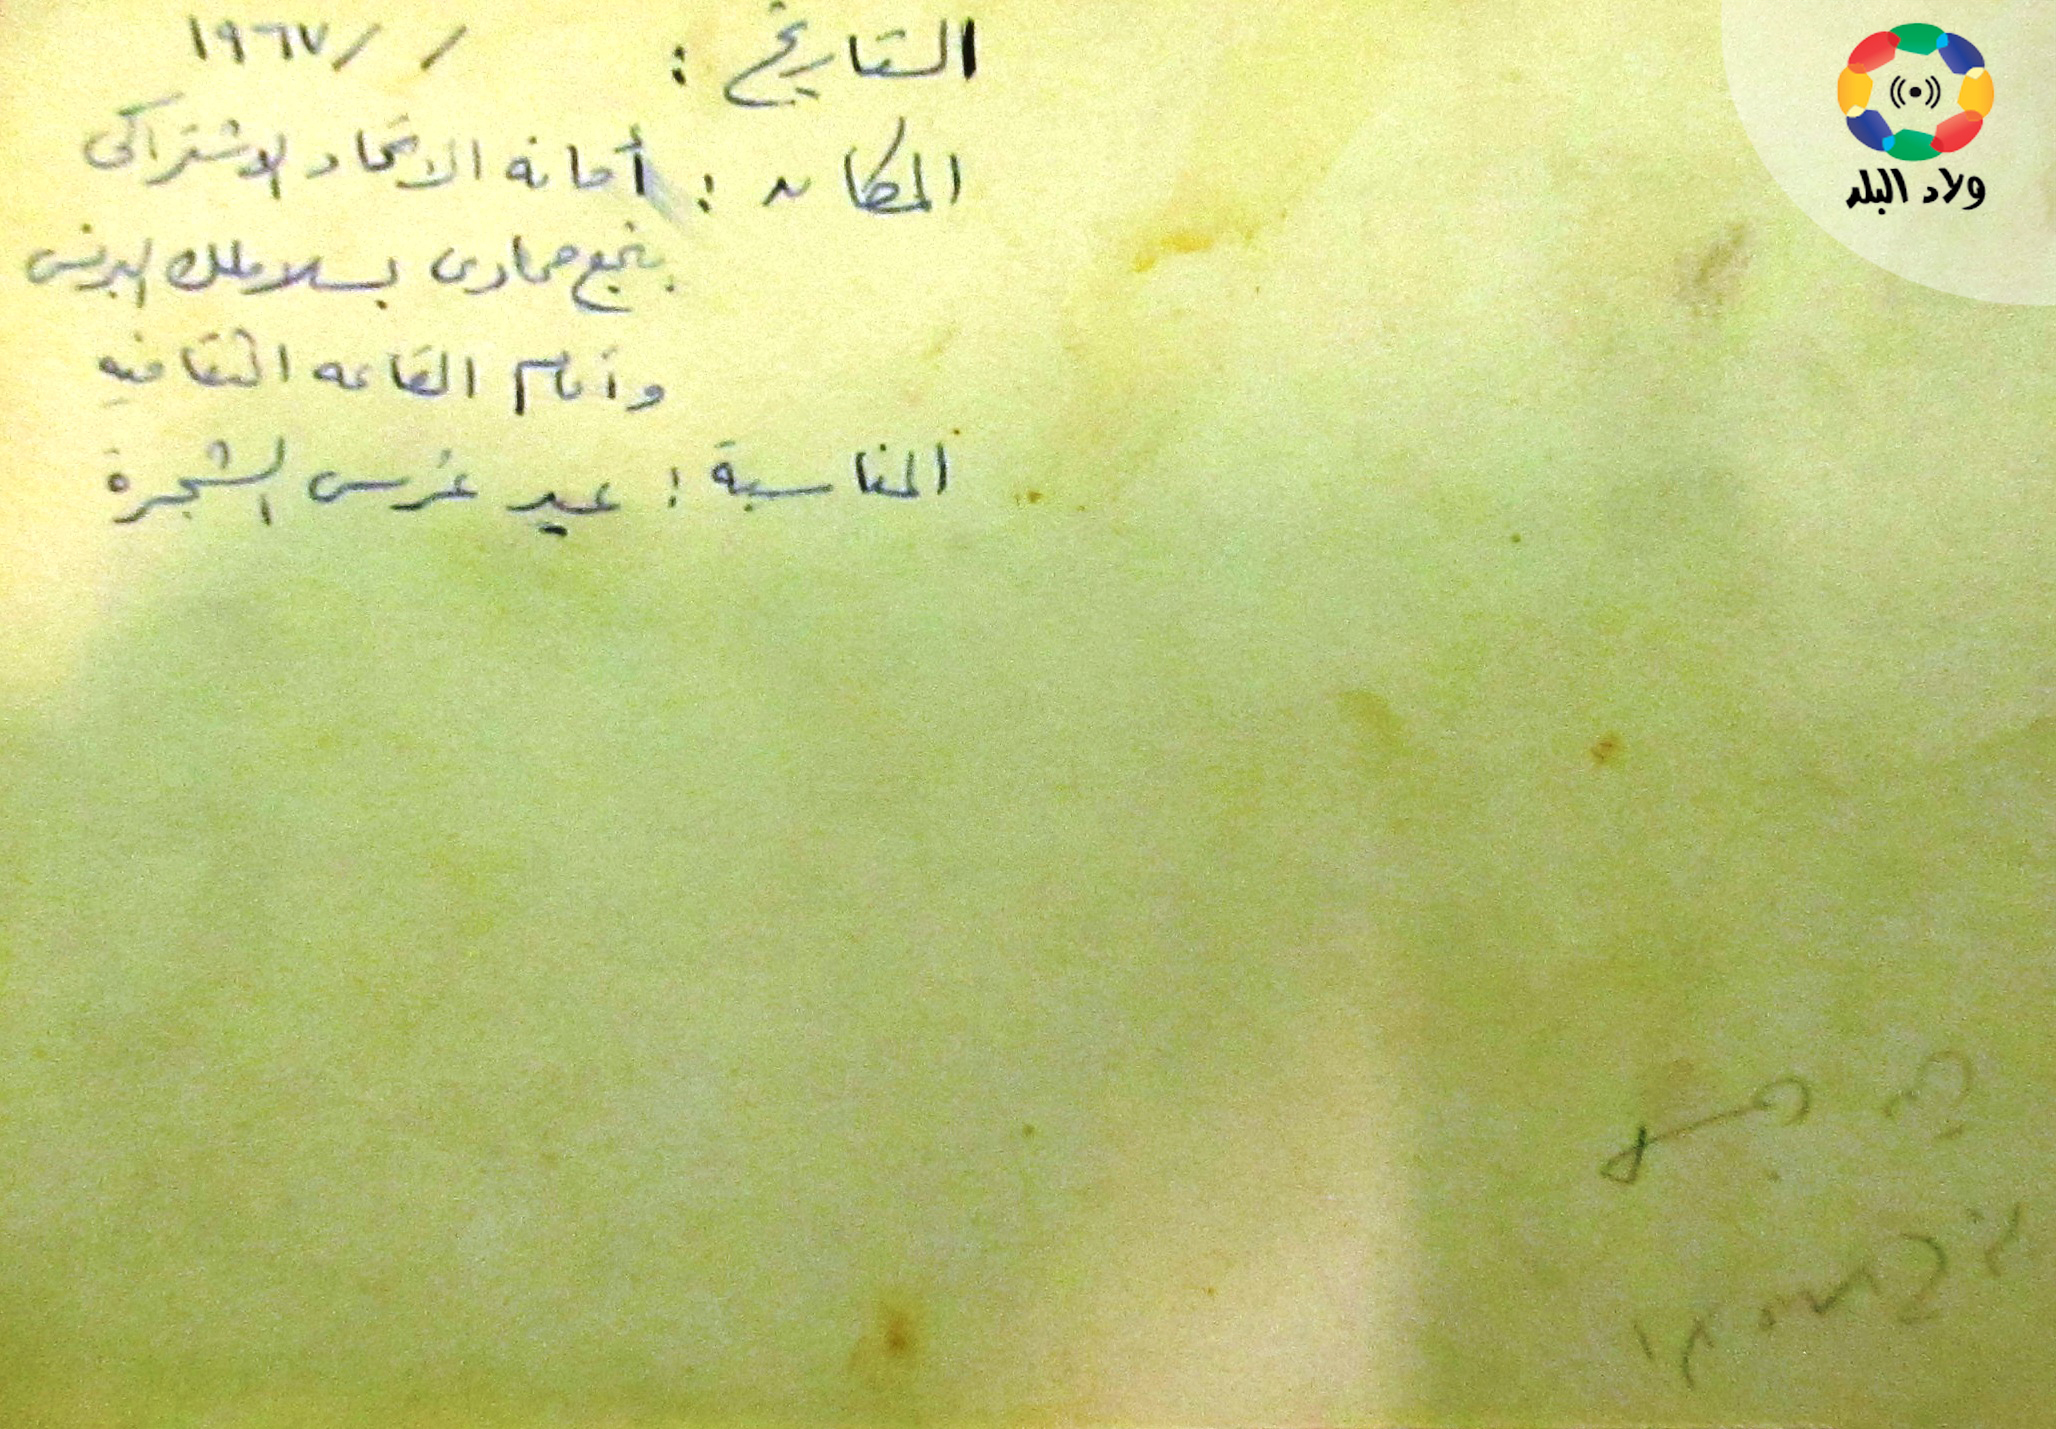 التاريخ : / / ١٩٦٧
المكان : أمانة الاتحاد الاشتراكى
بنجع حمادى بسلاملك البرنس
وأمام القاعه الثقافيه
المناسبة : عيد غرس الشجرة
ولاد البلد